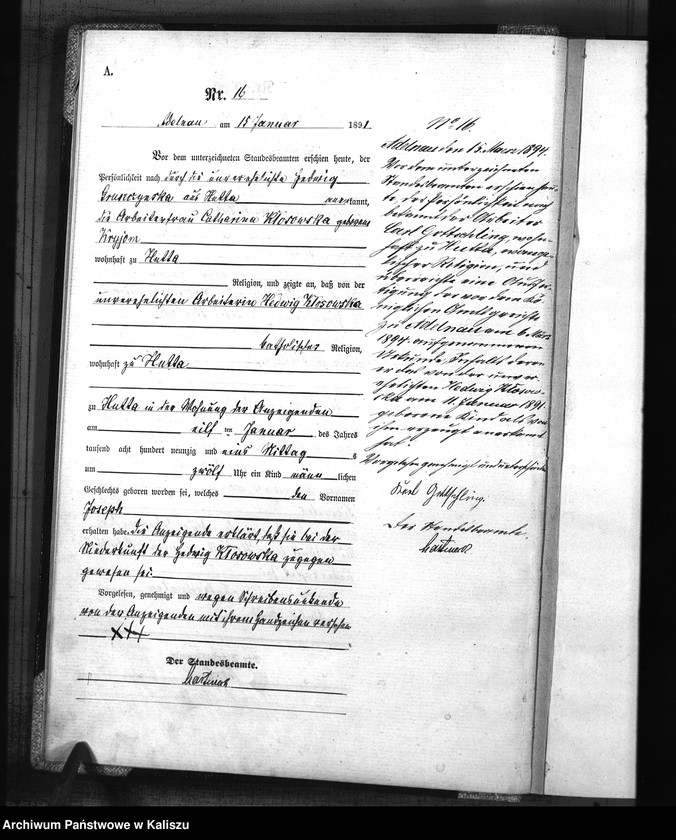 A.
Nr. 16
Adelnau am 15 Januar 1891
Vor dem unterzeichneten Standesbeamten erschien heute, der
Persönlichkeit nach durch die unverehelichte Hedwig
Gruszczynska aus Hutta anerkannt,
die Arbeiterfrau Catharina Kłosowska geborene
wohnhaft zu Hutta
Religion, und zeigte an, daß von der
unverehelichten Arbeiterin Hedwig Kłosowska
katholischer Religion,
wohnhaft zu Hutta
zu Hutta in der Wohnung der Anzeigenden
am eilf ten Januar des Jahres
tausend acht hundert neunzig und eins Mittag s
um zwölf Uhr ein Kind männ lichen
Geschlechts geboren worden sei, welches den Vornamen
Joseph
erhalten habe. Die Anzeigende erklärt, daß sie bei der
Niederkunft der Hedwig Kłosowska zugegen
gewesen sei.
Vorgelesen, genehmigt und wegen Schreibensunkunde
von der Anzeigenden mit ihrem Handzeichen versehen
XXX
Der Standesbeamte.
No 16.
Adelnau den 15. Maerz 1894.
Vor dem unterzeichneten
Standesbeamten erschien heu-
te, der Persönlichkeit nach
bekannt der Arbeiter
Carl Gottschling, wohn-
haft zu Hutta, evange-
lischer Religion, und
überreichte eine Ausfer-
tigung der vor dem Kö-
niglichen Amtsgerichte
zu Adelnau am 6. Maerz
1894 aufgenommenen
Urkunde, Inhalts deren
er das von der unver-
ehelichten Hedwig Kłosow-
ska am 11. Januar 1891
geborene Kind als von
ihm erzeugt anerkannt
hat.
Vorgelesen genehmigt und unterschrieben
Karl Gottschling.
Der Standesbeamte.
Archiwum Państwowe w Kaliszu